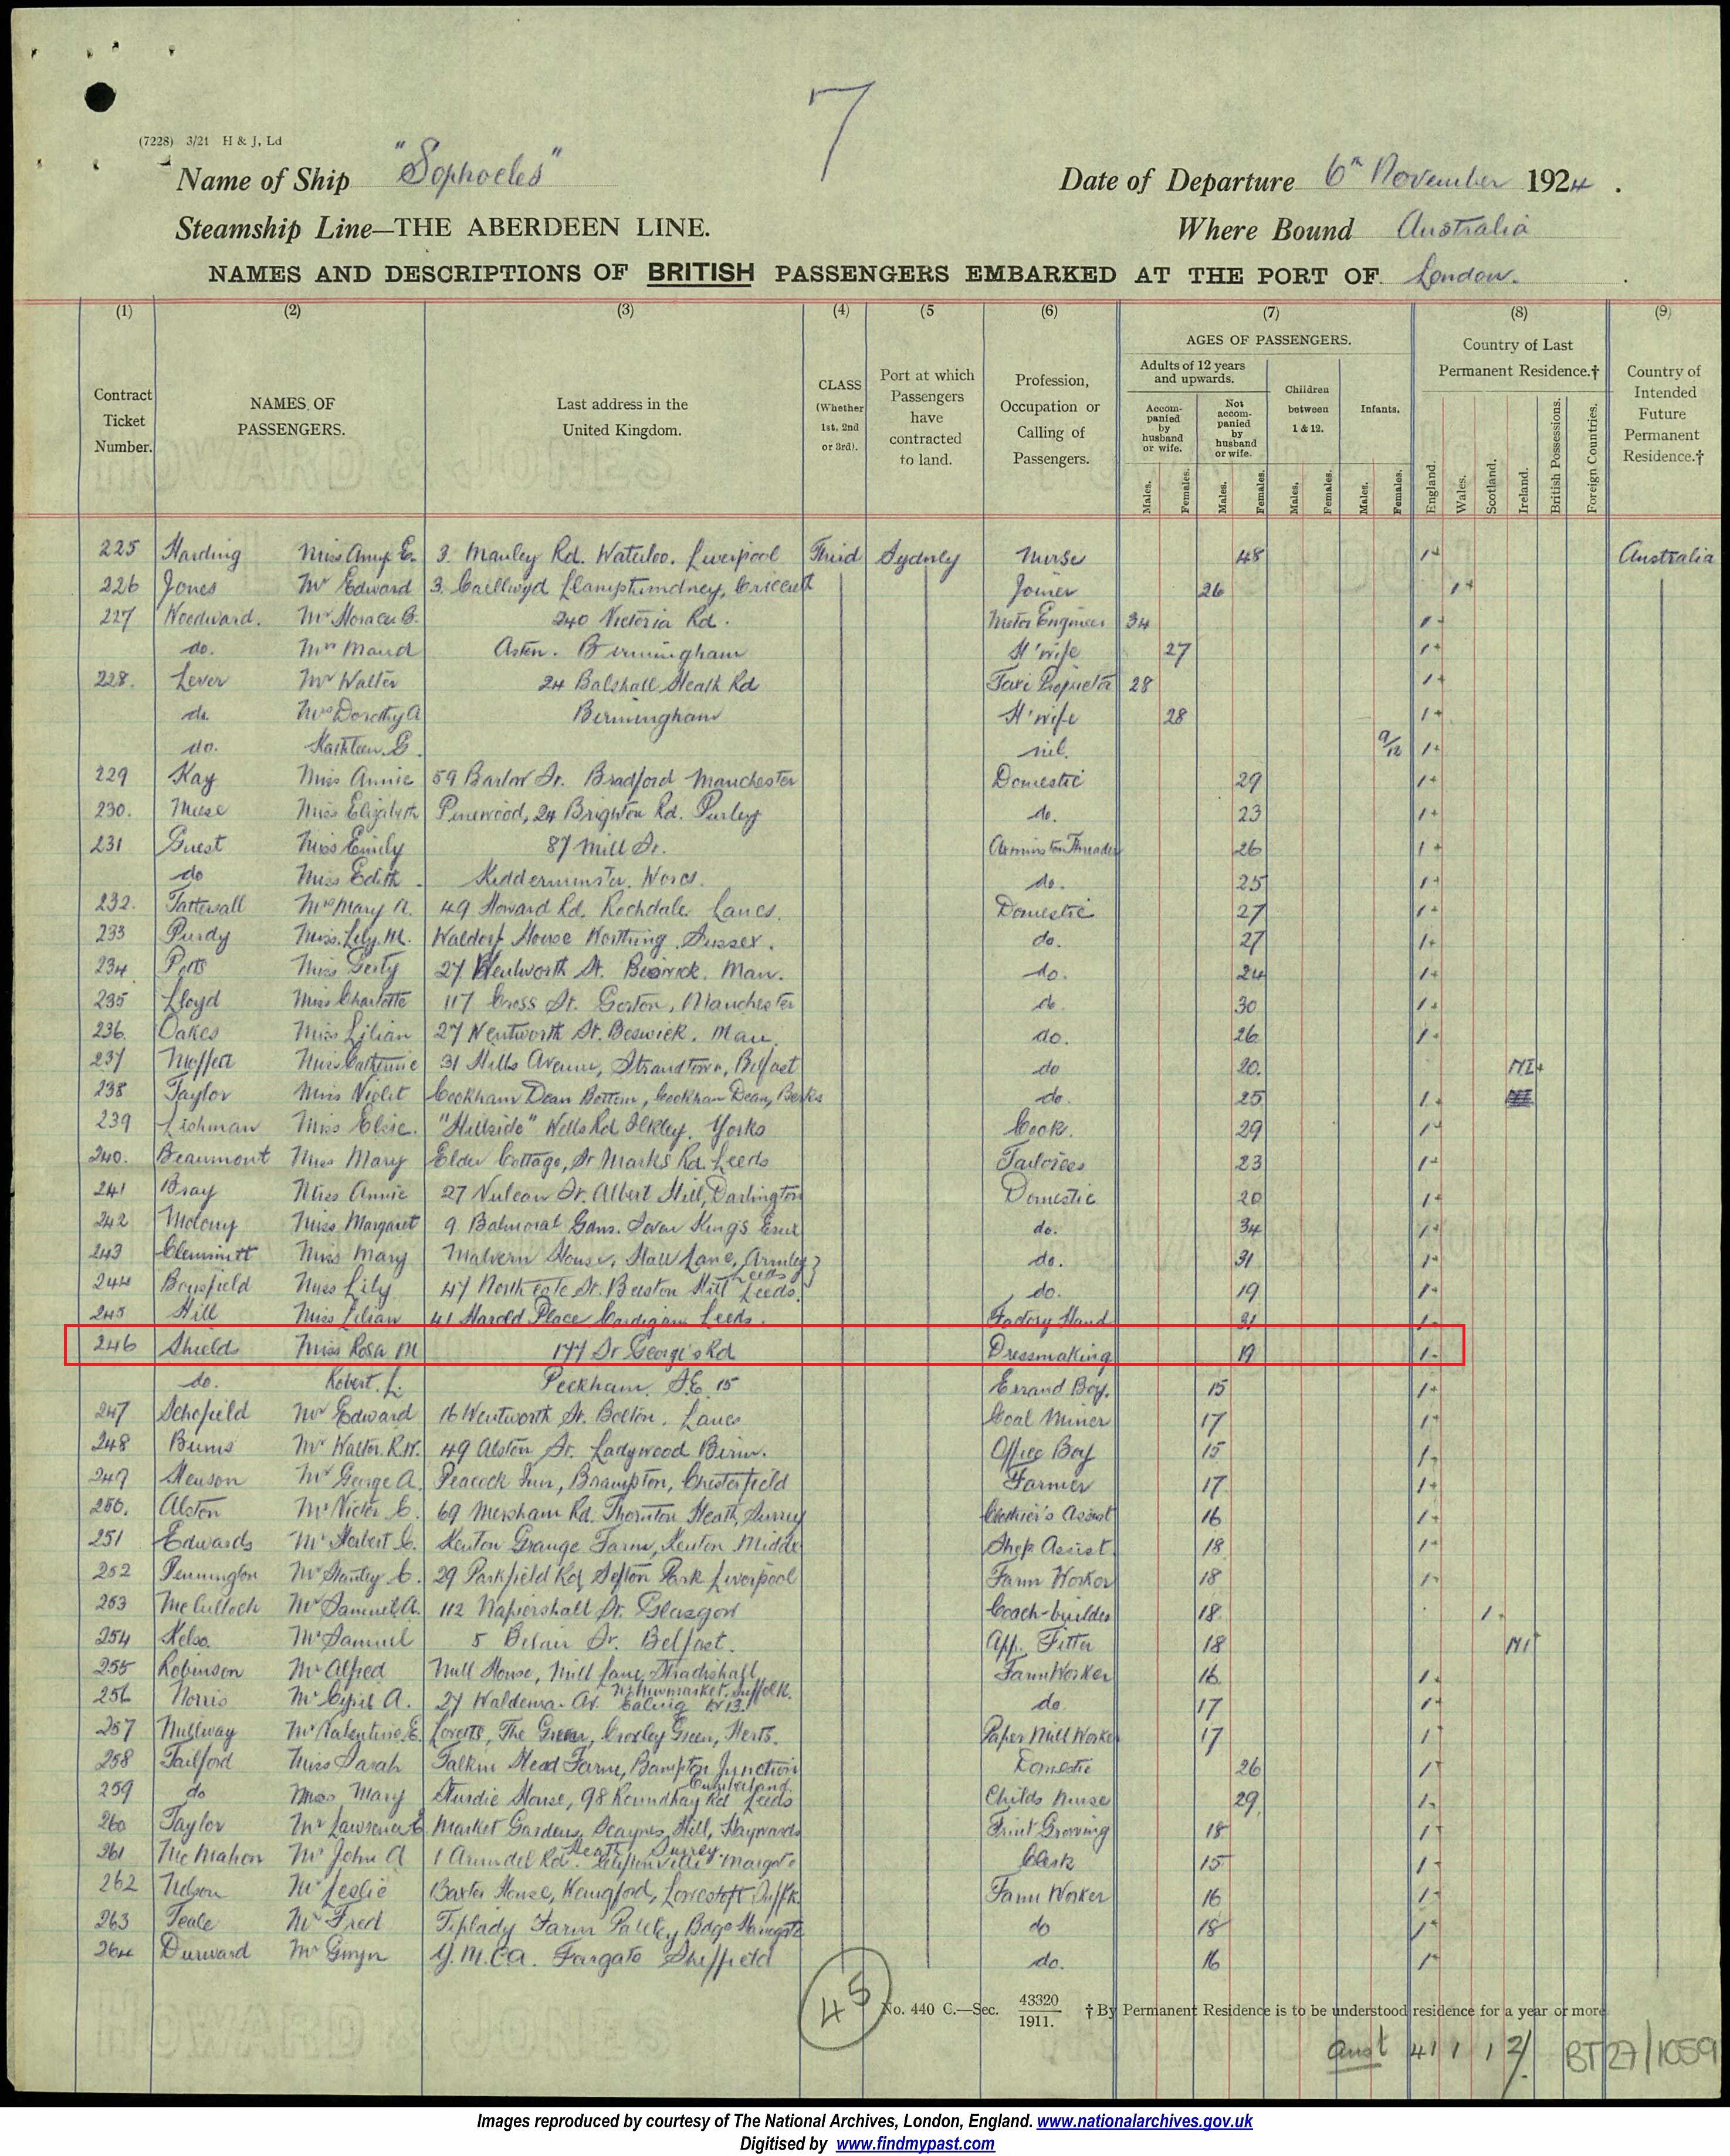 7
(7228) 3/21 H & J, Ld
Name of Ship "Sophocles" Date of Departure 6th November 1924.
Steamship Line—THE ABERDEEN LINE. Where Bound Australia
NAMES AND DESCRIPTIONS OF BRITISH PASSENGERS EMBARKED AT THE PORT OF London.
(1) (2) (3) (4) (5 (6) (7) (8) (9)
Contract Ticket Number.
NAMES OF PASSENGERS.
Last address in the United Kingdom.
CLASS (Whether 1st, 2nd or 3rd).
Port at which Passengers have contracted to land.
Profession, Occupation or Calling of Passengers.
AGES OF PASSENGERS.
Adults of 12 years and upwards.
Accompanied by husband or wife.
Not accompanied by husband or wife.
Children between 1 & 12.
Infants.
Males. Females. Males. Females. Males. Females. Males. Females.
Country of Last Permanent Residence.†
England. Wales. Scotland. Ireland. British Possessions. Foreign Countries.
Country of Intended Future Permanent Residence.†
225 Harding Miss Amy E. 3. Manley Rd. Waterloo. Liverpool Third Sydney Nurse 48 1 Australia
226 Jones Mr Edward 3. Joiner 26 1
227 Woodward. Mr Horace B. 240 Victoria Rd. Motor Engineer 34 1
do. Mrs Maud Aston. Birmingham H'wife 27 1
228. Lever Mr Walter 24 Balshall Heath Rd Taxi Proprietor 28 1
do. Mrs Dorothy A Birmingham H'wife 28 1
do. Kathleen. G. nil. 9/12 1
229 Kay Miss Annie 59 Barlow St. Bradford Manchester Domestic 29 1
230. Muse Miss Elizabeth Pinewood, 24 Brighton Rd. Purley do. 23 1
231 Guest Miss Emily 87 Mill St. 26 1
do Miss Edith Kidderminster. Worcs. do. 25 1
232. Tattersall Mrs Mary A. 49 Howard Rd. Rochdale Lancs. Domestic 27 1
233 Purdy Miss. Lily. M. Waldorf House Worthing. Sussex. do. 27 1
234 Potts Miss Gerty 27 Wentworth St. Beswick. Man. do. 24 1
235 Lloyd Miss Charlotte 117 Cross St. Gorton, Manchester do 30 1
236. Oakes Miss Lilian 27 Wentworth St. Beswick. Man. do. 26 1
237 Moffett Miss Catherine 31 Hills Avenue, Strandtown, Belfast do 20. NI
238 Taylor Miss Violet Cookham Dean Bottom, Cookham Dean, Berks do. 25 1
239 Lishman Miss Elsie. "Hillside" Wells Rd Ilkley. Yorks Cook. 29 1
240. Beaumont Miss Mary Elder Cottage, St Marks Rd. Leeds Tailoress 23 1
241 Bray Miss Annie 27 Vulcan St. Albert Hill, Darlington Domestic 20 1
242 Molony Miss. Margaret 9. Balmoral Gdns. Seven Kings Essex do. 34 1
243 Clemmitt Miss Mary Malvern House, Hall Lane, Armley Leeds do. 31 1
244 Bousfield Miss Lily 47 Northcote St. Beeston Hill Leeds. do. 19 1
245 Hill Miss Lilian 41 Harold Place Cardigan Leeds. Factory Hand 31 1
246 Shields Miss Rosa M 177 St George's Rd Dressmaking 19 1
do. Robert. L. Peckham. S.E. 15 Errand Boy. 15 1
247 Schofield Mr Edward 16 Wentworth St. Bolton. Lancs Coal Miner 17 1
248 Burns Mr Walter. R.W. 49 Alston St. Ladywood Birm. Office Boy 15 1
249 Henson Mr George A. Peacock Inn, Brampton, Chesterfield Farmer 17 1
250. Alston Mr Victor C. 69 Mersham Rd. Thornton Heath, Surrey Clothier's Assist 16 1
251 Edwards Mr Herbert C. Kenton Grange Farm, Kenton Middx Shop Assist. 18 1
252 Pennington Mr Stanley C. 29 Parkfield Rd, Sefton Park Liverpool Farm Worker 18 1
253 McCulloch Mr Samuel A. 112 Napiershall St. Glasgow Coach-builder 18 1
254 Kelso. Mr Samuel 5 Belair St. Belfast. App. Fitter 18 NI
255 Robinson Mr Alfred Mill House, Mill Lane, Stradishall Nr Newmarket. Suffolk. Farm Worker 16 1
256 Norris Mr Cyril A. 27 Waldemar Av. Ealing W13. do. 17 1
257 Nullway Mr Valentine. E. Loretts, The Green, Croxley Green, Herts. Paper Mill Worker 17 1
258 Tailford Miss Sarah Talkin Head Farm, Bampton Junction Cumberland Domestic 26 1
259 do Miss Mary Sturdie House, 98 Roundhay Rd Leeds Childs Nurse 29 1
260 Taylor Mr Lawrence E Market Gardens, Scaynes Hill, Haywards Heath Surrey Fruit Growing 18 1
261 McMahon Mr John A 1 Arundel Rd. Cliftonville Margate Clerk 15 1
262 Nelson Mr Leslie Baxter House, Lowestoft Suffk Farm Worker 16 1
263 Teale Mr Fred Tiplady Farm Harrogate do 18 1
264 Durward Mr Gwyn Y.M.C.A. Fargate Sheffield do. 16 1
45
No. 440 C.—Sec. 43320/1911. † By Permanent Residence is to be understood residence for a year or more
Aust 41 1 1 2/
BT27/1059
Images reproduced by courtesy of The National Archives, London, England. www.nationalarchives.gov.uk
Digitised by www.findmypast.com